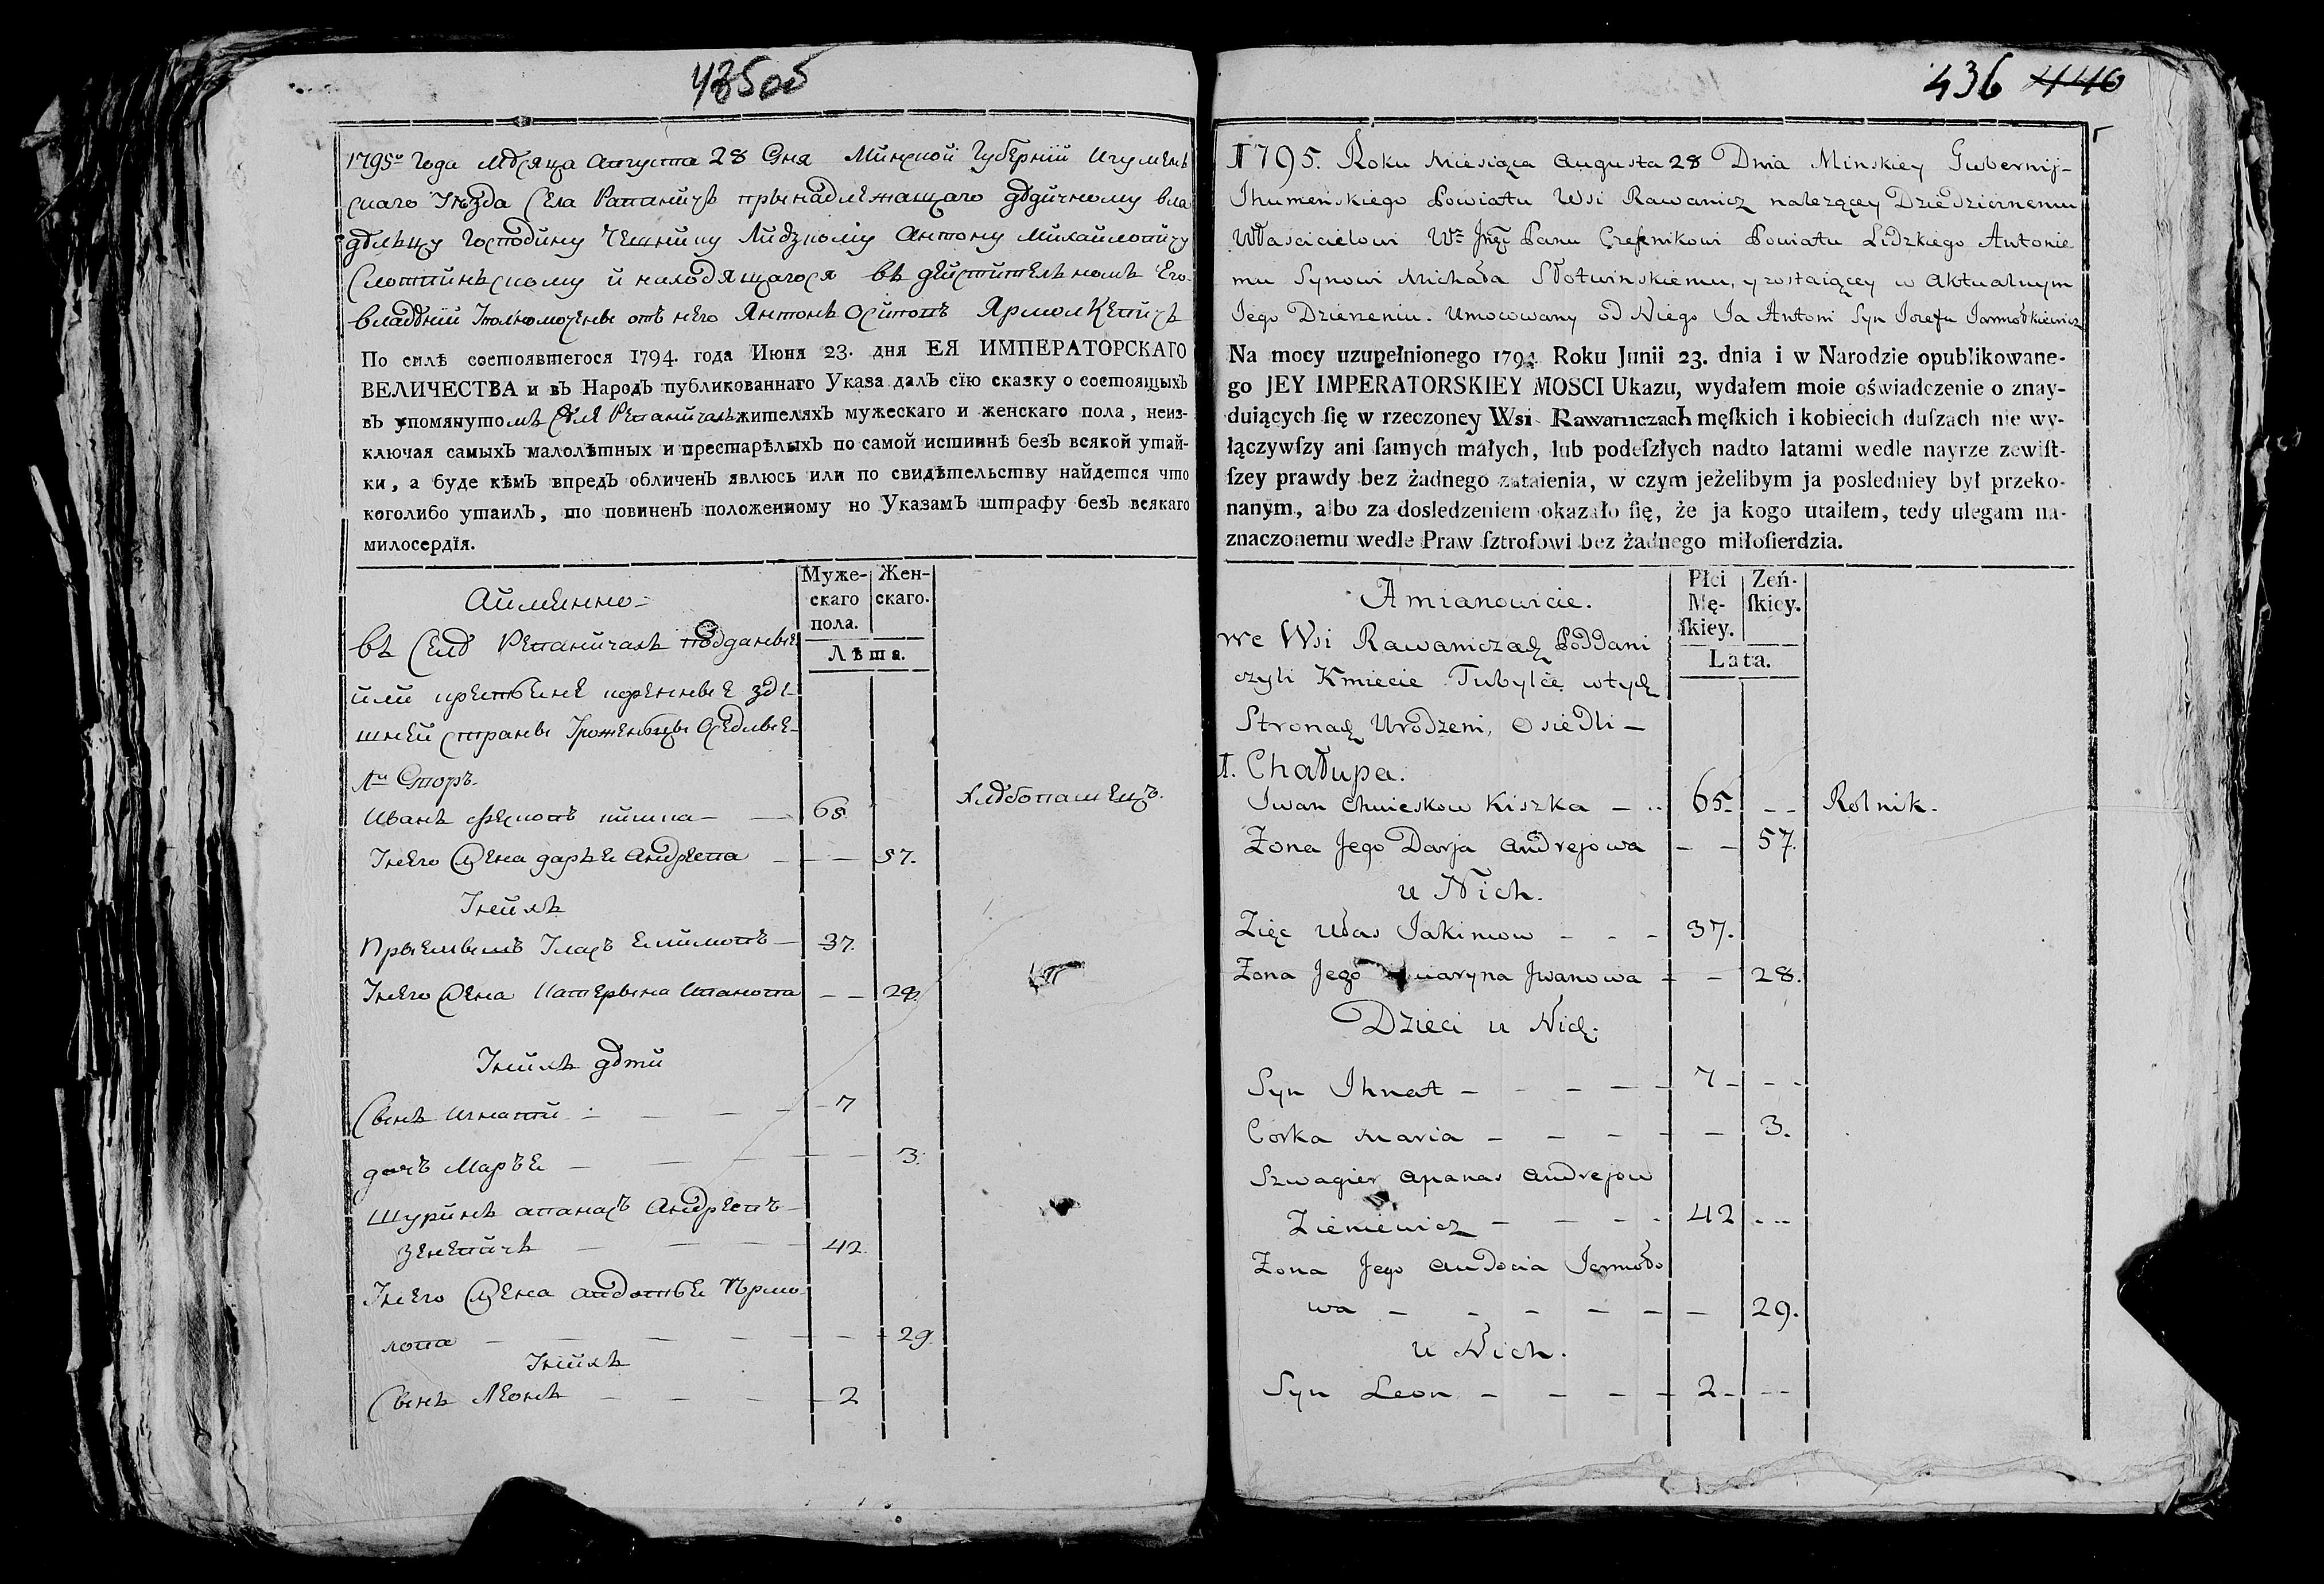 435об
1795го Года мѣсяца Августа 28 Дня Минской Губернїи Игумен
скаго Уѣзда Села Раваничъ принадлежащаго дѣдичному вла
дѣльцу Господину Чешнику Лидзкому Антону Михайловичу
Слотвинскому и находящагося въ действительномъ Его
владѣнїи Уполномоченны отъ него Антонъ Осиповъ Ярмолкевичъ
По силѣ состоявшегося 1794. года Июня 23. дня ЕЯ ИМПЕРАТОРСКАГО
ВЕЛИЧЕСТВА и въ Народъ публикованнаго Указа далъ сїю сказку о состоящыхъ
въ упомянутомъ Селе Раваничахъ жителяхъ мужескаго и женскаго пола, неиз-
ключая самыхъ малолѣтных и престарѣлыхъ по самой истиннѣ безъ всякой утай-
ки, а буде кѣмъ впредъ обличенъ явлюсь или по свидѣтельству найдется что
коголибо утаилъ, то повиненъ положенному по Указамъ штрафу безъ всякаго
милосердїя.
Муже-
скаго
пола.
Жен-
скаго.
Лѣта.
Аименно
въ Селѣ Раваничахъ подданые
или крестьяне коренные зде
шней страны Уроженцы Оседлые
1й Дворъ
Иванъ Фесковъ кишка — 65 Хлѣбопашецъ.
Унего Жена дарья Андреева — — 57.
Унихъ
Приемышъ Уласъ Екимовъ — 37.
Унего Жена Катерына Иванова — — 28.
Унихъ дѣти
Сынъ Игнатий — 7
дочъ Марья — — 3.
Шуринъ апанасъ Андреевъ
Зеневичъ — 42.
Унего Жена авдотья Ярмо
лова — — 29.
Унихъ
Сынъ Леонъ — 2
436 440
1795. Roku Miesiąca Augusta 28 Dnia Minskiey Gubernij
Ihumeńskiego Powiatu Wsi Rawanicz należącey Dziedzicznemu
Włascicielowi Wo Jmę Panu Czesnikowi Powiatu Lidzkiego Antonie
mu Synowi Michała Słotwinskiemu, y zostaiącey w Aktualnym
Jego Dzierzeniu. Umocowany od Niego Ja Antoni Syn Jozefa Jarmołkiewicz
Na mocy uzupełnionego 1794 Roku Junii 23. dnia i w Narodzie opublikowane-
go JEY IMPERATORSKIEY MOSCI Ukazu, wydałem moie oświadczenie o znay-
duiących ſię w rzeczoney Wsi Rawaniczach męſkich i kobiecich duſzach nie wy-
łączywſzy ani ſamych małych, lub podeſzłych nadto latami wedle nayrze zewiſt-
ſzey prawdy bez żadnego zataienia, w czym jeżelibym ja posledniey był przeko-
nanym, albo za dosledzeniem okazało ſię, że ja kogo utaiłem, tedy ulegam na-
znaczonemu wedle Praw ſztrofowi bez żadnego miłoſierdzia.
Płci
Mę-
ſkiey.
Zeń-
ſkiey.
Lata.
A mianowicie.
we Wsi Rawaniczach Poddani
czyli Kmiecie Tubylce wtych
Stronach Urodzeni, Osiedli —
1. Chałupa.
Iwan Chwieskow Kiszka — 65. — Rolnik.
Zona Jego Darja Andrejowa — — 57.
u Nich.
Zięc Ułas Jakimow — — 37.
Zona Jego Iwanowa — 28.
Dzieci u Nich.
Syn Ihnat — — — 7 — —
Corka Maria — — — — 3.
Szwagier Apanas Andrejow
Zieniewicz — — — 42 — —
Zona Jego Audocia Jarmoło
wa — — — — — 29.
u Nich.
Syn Leon — — — 2 — —